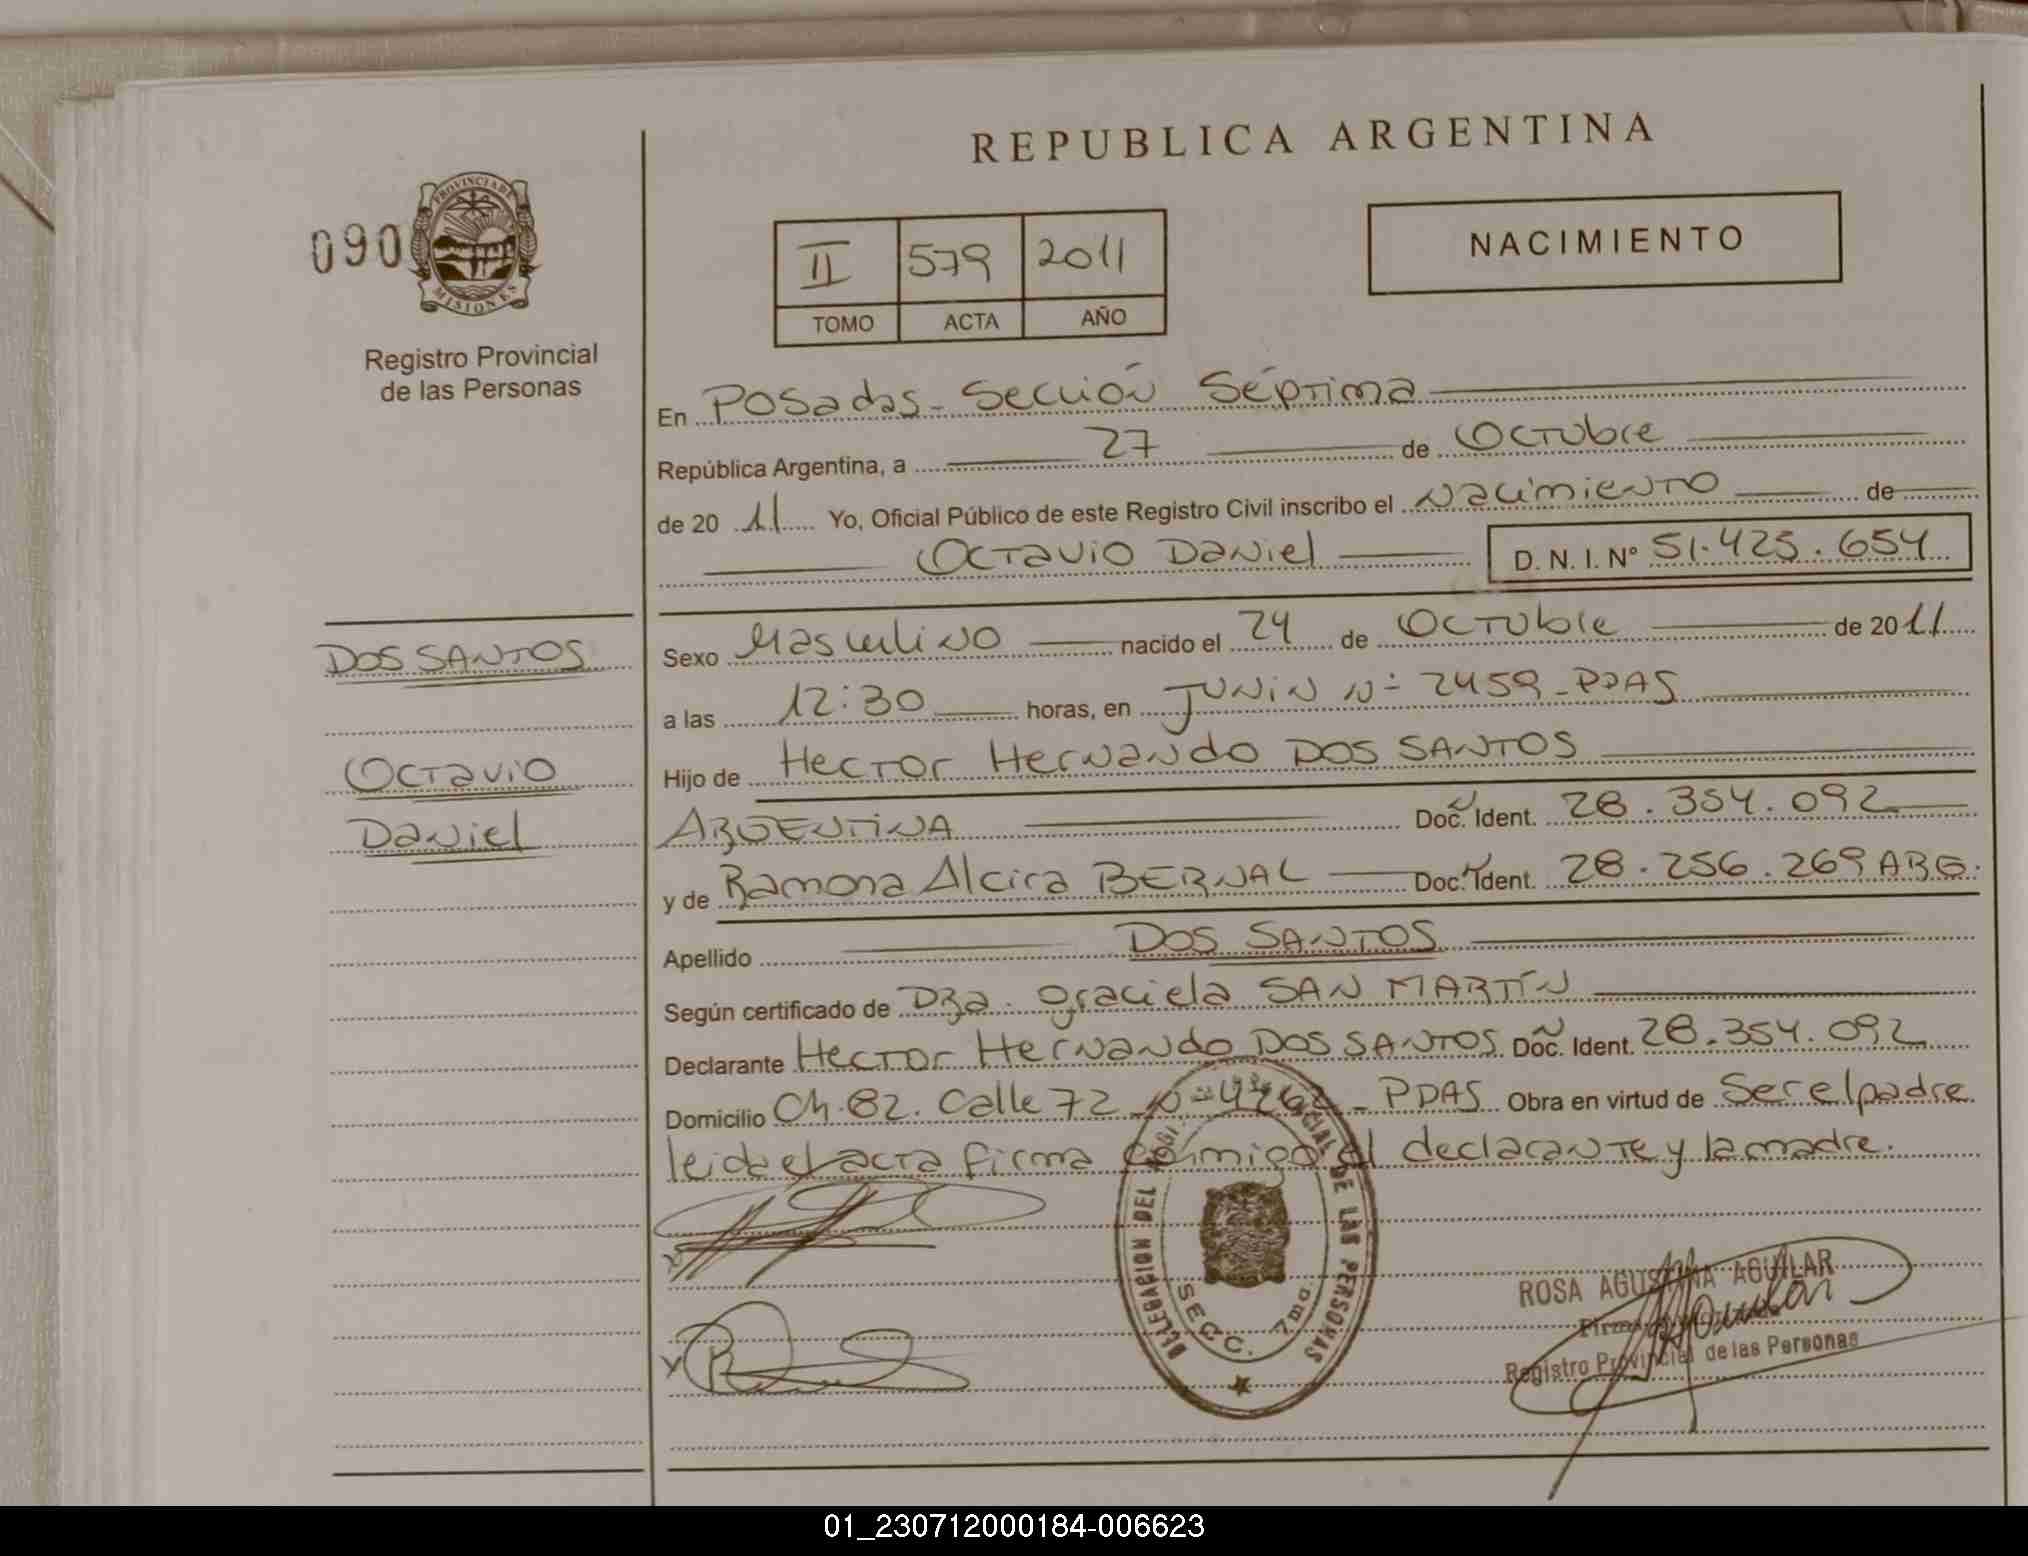 REPUBLICA ARGENTINA
090
PROVINCIA DE MISIONES
Registro Provincial
de las Personas
II 579 2011
TOMO ACTA AÑO
NACIMIENTO
En Posadas - Sección Séptima
República Argentina, a 27 de Octubre
de 20 11 Yo, Oficial Público de este Registro Civil inscribo el Nacimiento de
Octavio Daniel D. N. I. Nº 51.425.654
DOS SANTOS
Octavio
Daniel
Sexo Masculino nacido el 24 de Octubre de 20 11
a las 12:30 horas, en JUNIN Nº 2459 - PDAS
Hijo de Hector Hernando DOS SANTOS
ARGENTINA Doc. Ident. 28.354.092
y de Ramona Alcira BERNAL Doc. Ident. 28.256.269 ARG.
Apellido DOS SANTOS
Según certificado de Dra. Graciela SAN MARTÍN
Declarante Hector Hernando DOS SANTOS Doc. Ident. 28.354.092
Domicilio Ch. 82. Calle 72 Nº - PDAS Obra en virtud de Ser el padre
leida el acta firma conmigo el declarante y la madre.
DELEGACION DEL REGISTRO PROVINCIAL DE LAS PERSONAS
SECC. 7ma.
ROSA AGUSTINA AGUILAR
Registro Provincial de las Personas
01_230712000184-006623